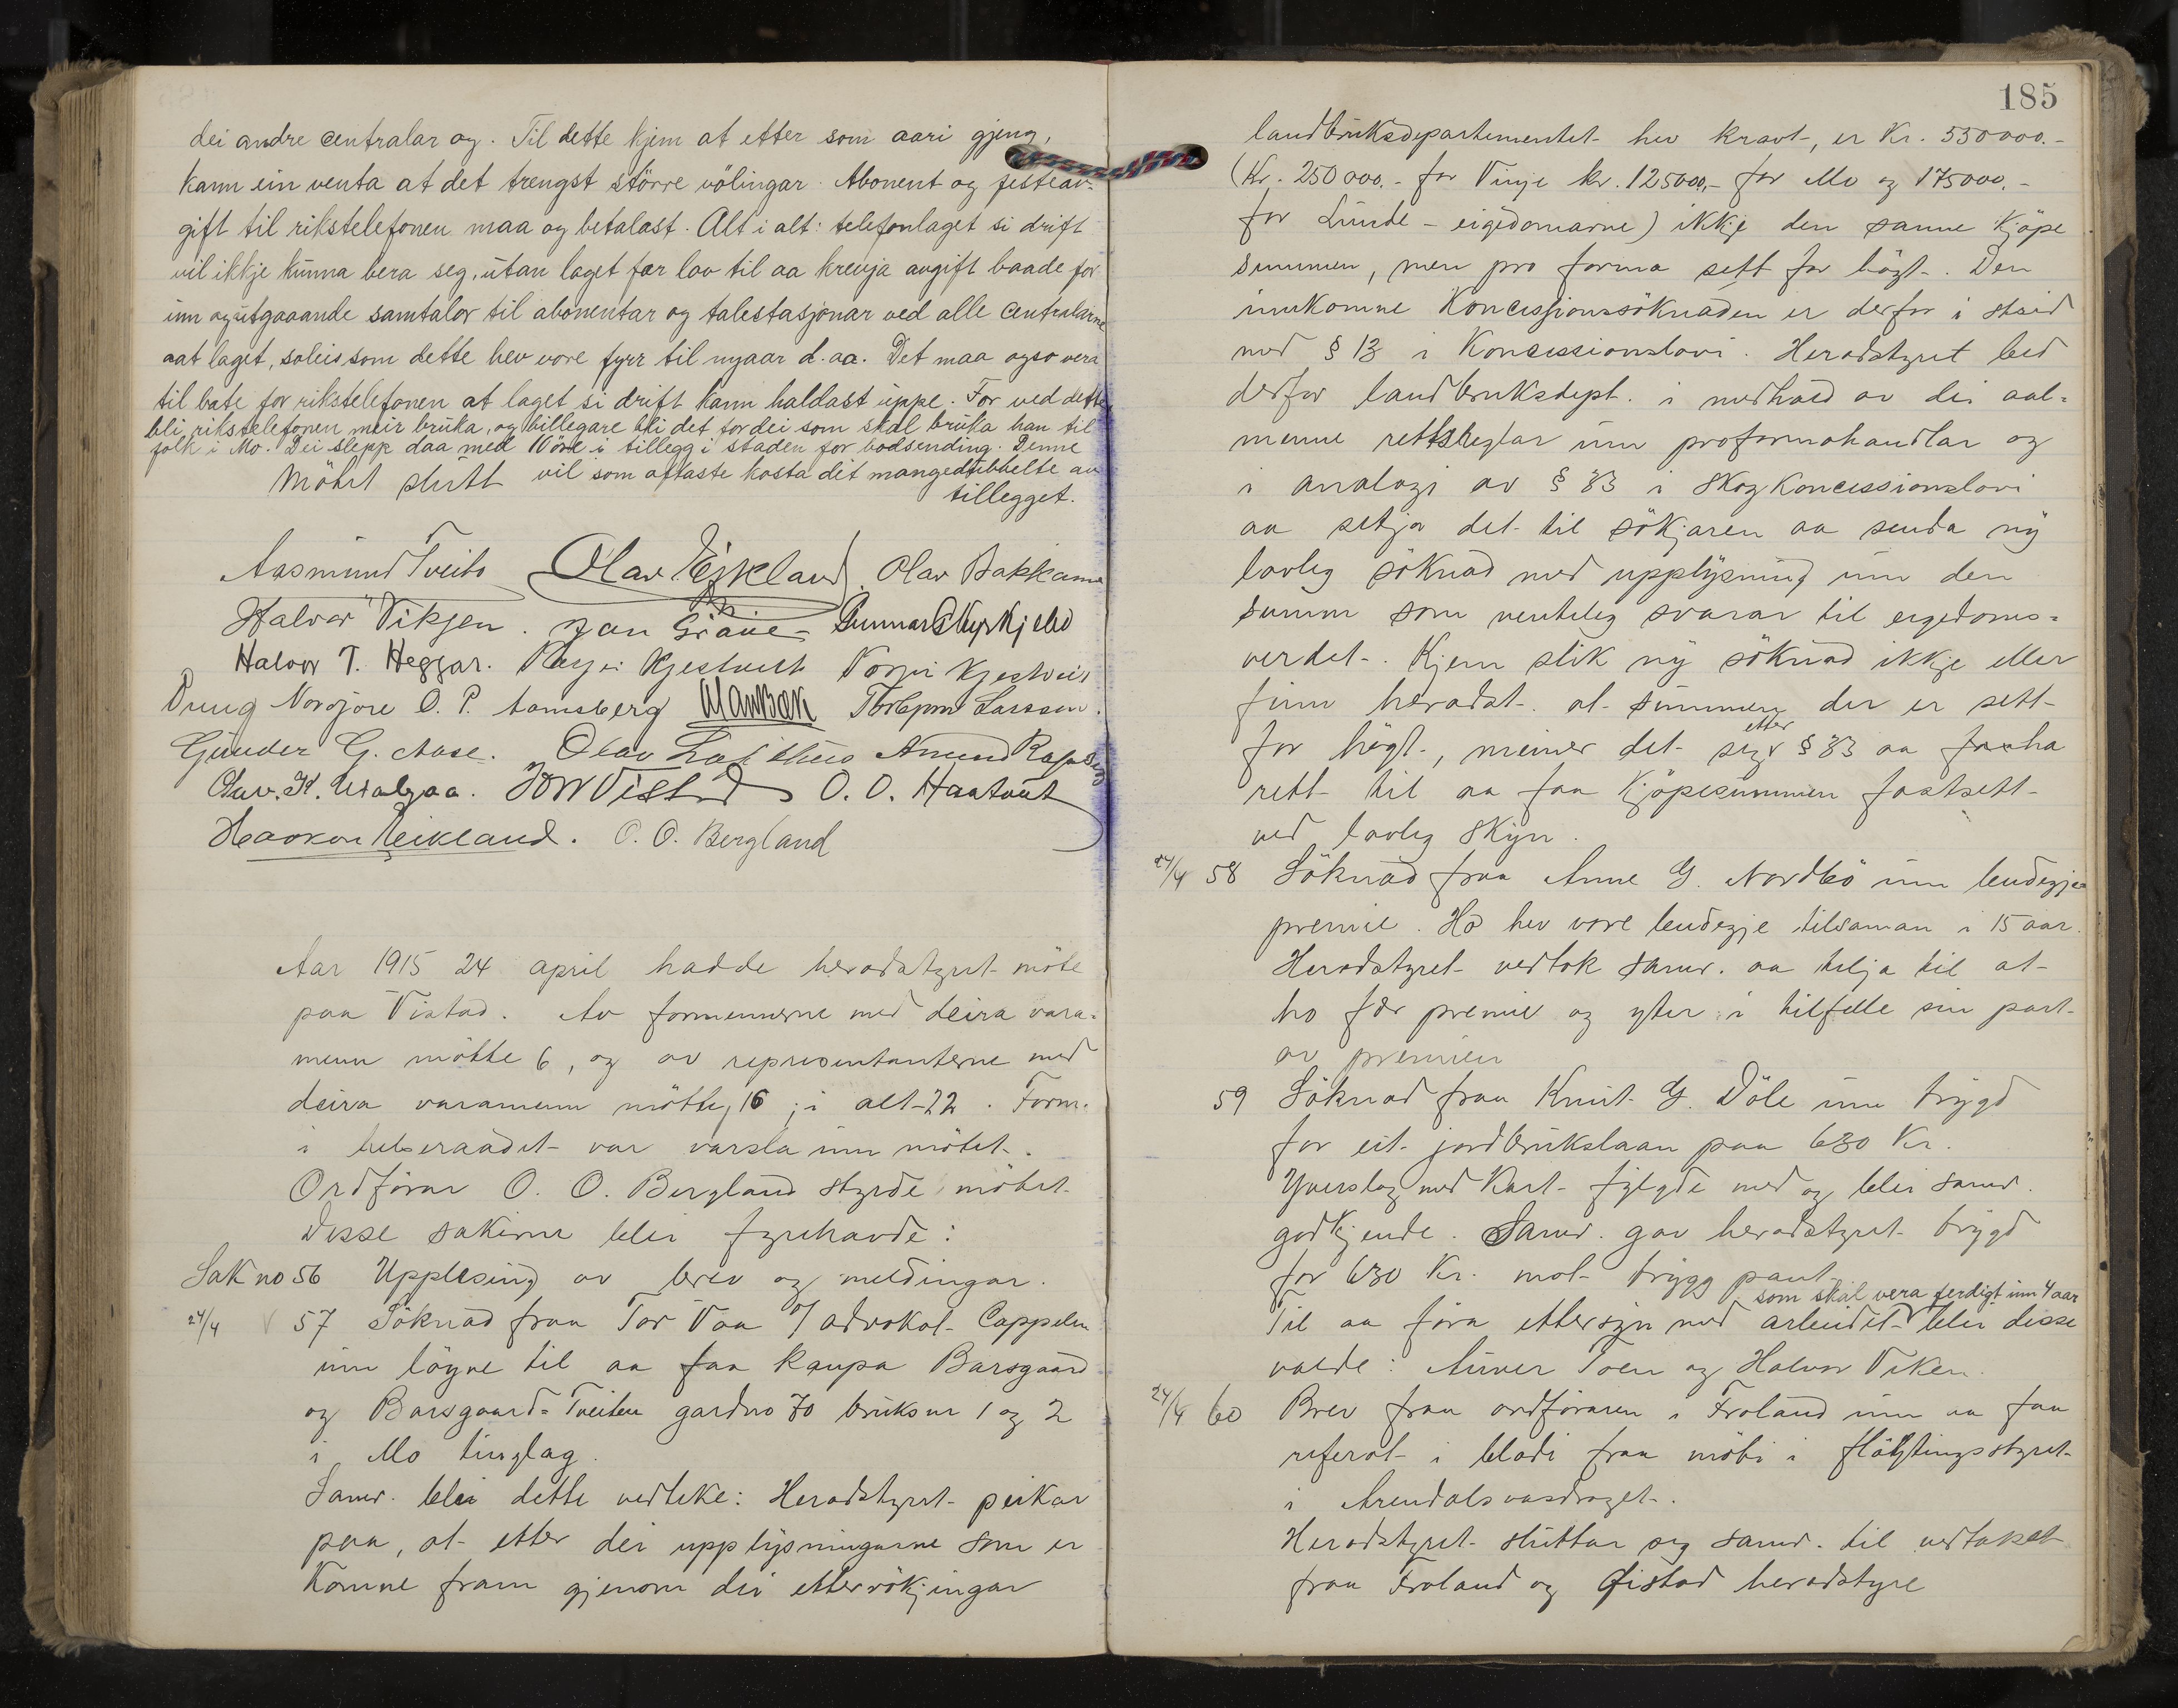 dei andre centralar og. Til dette kjem at etter som aari gjeng,
kann ein venta at det trengst större völingar. Abonent og festeav-
gift til rikstelefonen maa og betalast. Alt i alt: telefonlaget si drift
vil ikkje kunna bera seg, utan laget fær lov til aa krevja avgift baade for
inn og utgaaande samtalor til abonentar og talestasjonar ved alle centralarne
aat laget, soleis som dette hev vore fyrr til nyaar d. aa. Det maa ogso vera
til bate for rikstelefonen at laget si drift kann haldast uppe. For ved dette
bli rikstelefonen meir bruka, og billegare bli det for dei som skal bruka han til
folk i Mo. Dei slepp daa med 10 öre i tillegg i staden for bodsending. Denne
vil som oftaste kosta dei mangedubbelte av
tillegget.
Mötet slutt
Aasmund Tveito Olav Eiskland Olav Bakkane
Halvor Viksen. Jon Grave Gunnar Skyrkjebø
Halvor T. Heggar. Kjestveit Kjestveit
O. P. Aamsberg Torbjørn Larsson.
Gunder G. Aase. Olav
Olav. K. Jon Vistad O. O. Haatveit
Haakon Neikland. O. O. Bergland
Aar 1915 24 april hadde heradstyret möte
paa Vistad. Av formennerne med deira vara-
menn mötte 6, og av representanterne med
deira varamenn mötte 16; i alt 22. Form.
i helseraadet var varsla um mötet.
Ordförar O. O. Bergland styrde mötet.
Desse sakirne blei fyrehavde:
Sak no 56 Upplesing av brev og meldingar.
24/4 57 Söknad fraa Tor Vaa v/ advokat Cappelen
um löyve til aa faa kaupa Barsgaard
og Barsgaard-Tveiten gardno 70 bruksnr 1 og 2
i Mo tinglag.
Samr. blei dette vedteke: Heradstyret peikar
paa, at etter dei upplysningarne som er
komne fram gjenom dei etterrökjingar
185
landbruksdepartementet hev kravt, er Kr. 550000.-
(Kr. 250000.- for Vinje kr. 125000,- for Mo og 175000.-
for Lunde-eigedomarne) ikkje den sanne kjöpe
summen, men pro forma sett for högt. Den
innkomne Koncessjonssöknaden er derfor i strid
med § 13 i Koncessionslovi. Heradstyret bed
derfor landbruksdept. i medhald av dei aal-
menne rettsreglar um proformahandlar og
i analogi av § 33 i Skogkoncessionslovi
aa setja det til sökjaren aa senda ny
lovleg söknad med upplysning um den
summ som venteleg svarar til eigedoms-
verdet. Kjem slik ny söknad ikkje eller
finn heradst. at summen der er sett
for högt, meiner det seg etter § 33 aa ha
rett til aa faa kjöpesummen fastsett
ved lovleg skyn.
24/4 58 Söknad fraa Anne G. Nordbö um budegje
premie. Ho hev vore budegje tilsaman i 15 aar.
Heradstyret vedtok samr. aa telja til at
ho fær premie og yter i tilfelle sin part
av premien
59 Söknad fraa Knut G. Döle um trygd
for eit jordbrukslaan paa 630 Kr.
Yverslag med Kart fylgde med og blei samr.
godkjende. Samr. gav heradstyret trygd
for 630 Kr. mot trygg pant.
som skal vera ferdigt inn 4 aar
Til aa föra ettersyn med arbeidet blei disse
valde: Aaner Toen og Halvor Viken.
24/4 60 Brev fraa ordföraren i Froland um aa faa
referat i bladi fraa möti i flöytingsstyret
i Arendalsvasdraget.
Heradstyret sluttar seg samr. til vedtaket
fraa Froland og Öistad heradstyre